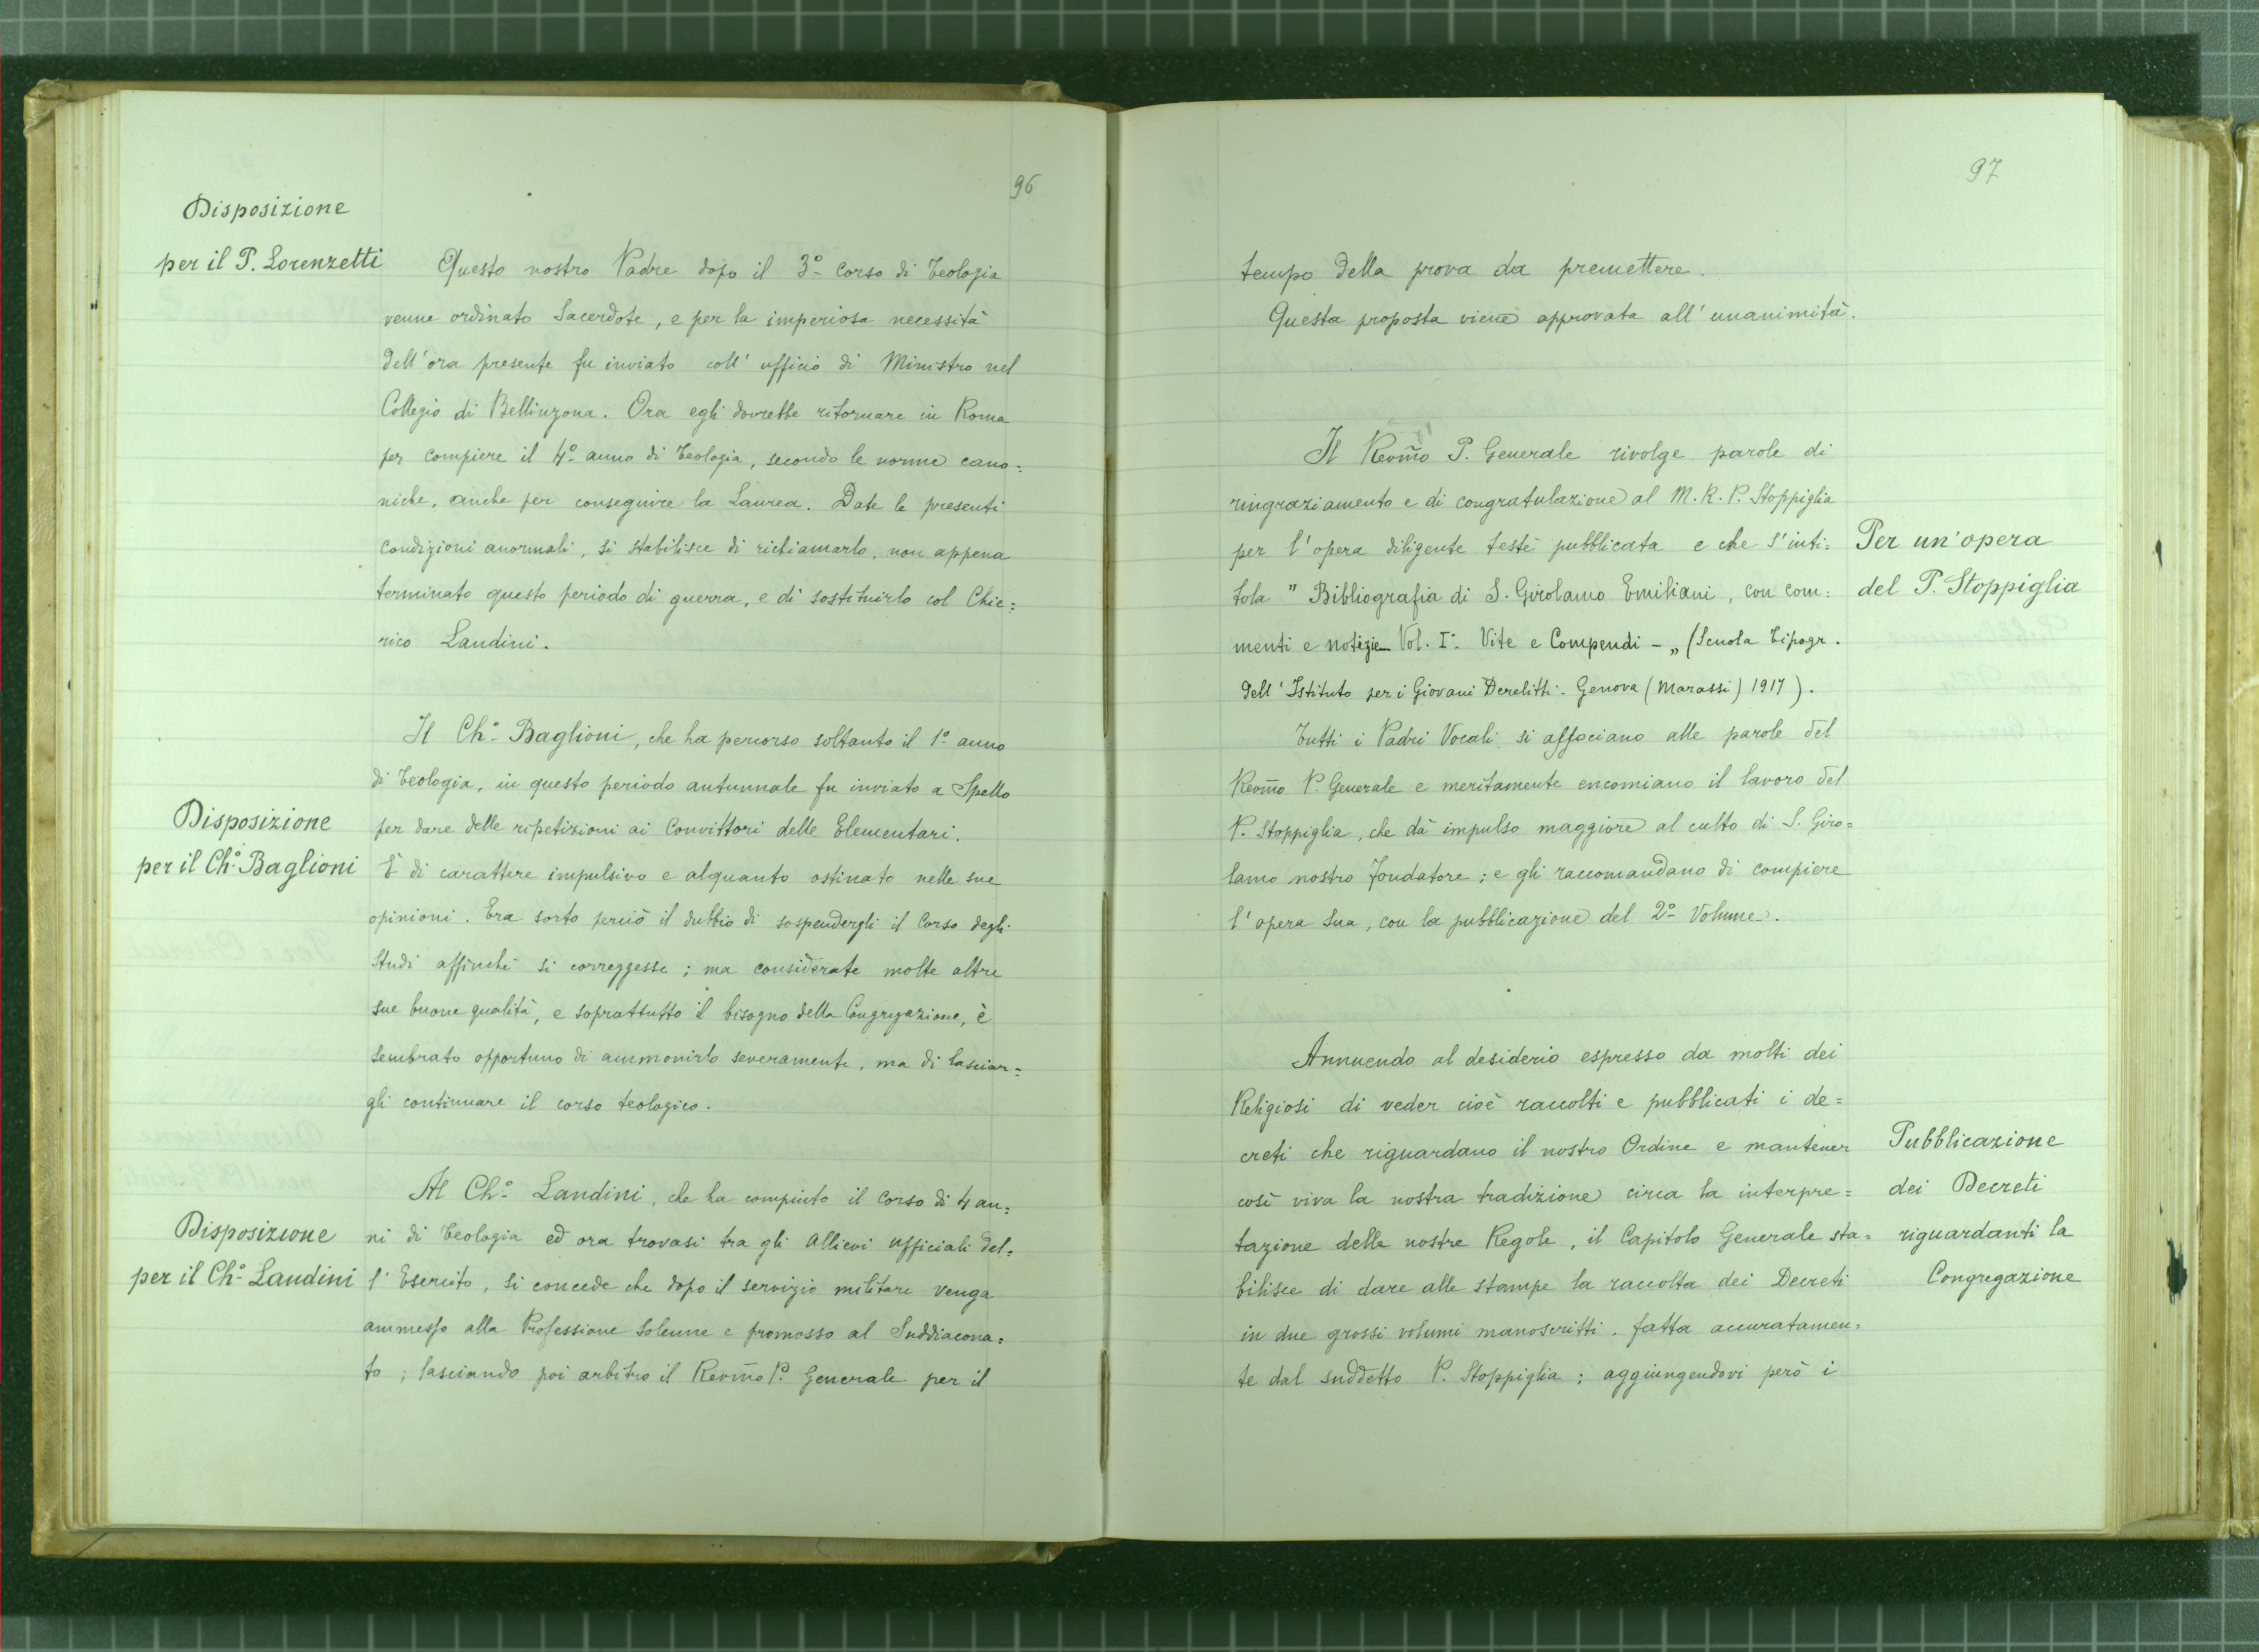 96
Disposizione
per il P. Lorenzetti
Questo nostro Padre dopo il 3º corso di Teologia
venne ordinato Sacerdote, e per la imperiosa necessità
dell'ora presente fu inviato coll'ufficio di Ministro nel
Collegio di Bellinzona. Ora egli dovrebbe ritornare in Roma
per compiere il 4º anno di Teologia, secondo le norme cano=
niche, anche per conseguire la Laurea. Date le presenti
condizioni anormali, si stabilisce di richiamarlo, non appena
terminato questo periodo di guerra, e di sostituirlo col Chie=
rico Landini.
Disposizione
per il Chº Baglioni
Il Chº Baglioni, che ha percorso soltanto il 1º anno
di Teologia, in questo periodo autunnale fu inviato a Spello
per dare delle ripetizioni ai Convittori delle Elementari.
È di carattere impulsivo e alquanto ostinato nelle sue
opinioni. Era sorto perciò il dubbio di sospendergli il Corso degli
Studi affinchè si correggesse; ma considerate molte altre
sue buone qualità, e soprattutto il bisogno della Congregazione, è
sembrato opportuno di ammonirlo severamente, ma di lasciar=
gli continuare il corso teologico.
Disposizione
per il Chº Landini
Al Chº Landini, che ha compiuto il corso di 4 an=
ni di Teologia ed ora trovasi tra gli Allievi Ufficiali del=
l'Esercito, si concede che dopo il servizio militare venga
ammesso alla Professione Solenne e promosso al Suddiacona=
to; lasciando poi arbitro il Revm̃o P. Generale per il
97
tempo della prova da premettere.
Questa proposta viene approvata all'unanimità.
Il Revm̃o P. Generale rivolge parole di
ringraziamento e di congratulazione al M. R. P. Stoppiglia
per l'opera diligente testè pubblicata e che s'inti=
tola " Bibliografia di S. Girolamo Emiliani, con com=
menti e notizie Vol. I: Vite e Compendi - „ (Scuola Tipogr.
dell'Istituto per i Giovani Derelitti - Genova (Marassi) 1917).
Per un'opera
del P. Stoppiglia
Tutti i Padri Vocali si associano alle parole del
Revm̃o P. Generale e meritamente encomiano il lavoro del
P. Stoppiglia, che dà impulso maggiore al culto di S. Giro=
lamo nostro Fondatore; e gli raccomandano di compiere
l'opera sua, con la pubblicazione del 2º Volume.
Annuendo al desiderio espresso da molti dei
Religiosi di veder cioè raccolti e pubblicati i de=
creti che riguardano il nostro Ordine e mantener
così viva la nostra tradizione circa la interpre=
tazione delle nostre Regole, il Capitolo Generale sta=
bilisce di dare alle stampe la raccolta dei Decreti
in due grossi volumi manoscritti, fatta accuratamen=
te dal suddetto P. Stoppiglia; aggiungendovi però i
Pubblicazione
dei Decreti
riguardanti la
Congregazione